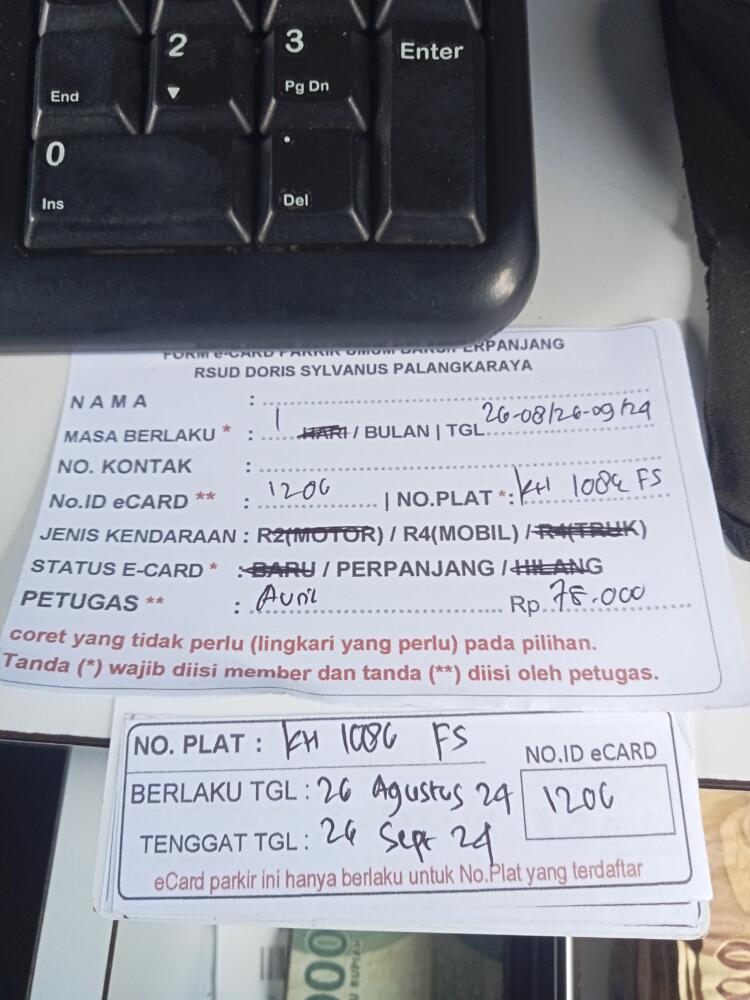 2
3
Enter
End
▼
Pg Dn
0
.
Ins
Del
FORM e-CARD PARKIR UMUM BARU/PERPANJANG
RSUD DORIS SYLVANUS PALANGKARAYA
NAMA :
MASA BERLAKU * : 1 HARI / BULAN | TGL 26-08/26-09/24
NO. KONTAK :
No.ID eCARD ** : 1206 | NO.PLAT *: KH 1086 FS
JENIS KENDARAAN : R2(MOTOR) / R4(MOBIL) / R4(TRUK)
STATUS E-CARD * : BARU / PERPANJANG / HILANG
PETUGAS ** : Avril Rp. 78.000
coret yang tidak perlu (lingkari yang perlu) pada pilihan.
Tanda (*) wajib diisi member dan tanda (**) diisi oleh petugas.
NO. PLAT : KH 1086 FS
NO.ID eCARD
BERLAKU TGL : 26 Agustus 24
1206
TENGGAT TGL : 26 Sept 24
eCard parkir ini hanya berlaku untuk No.Plat yang terdaftar